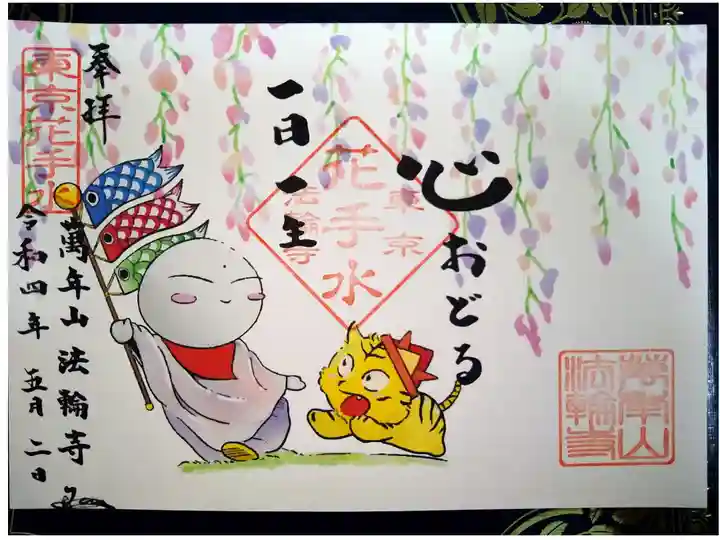 心おどる
一日一生
東京
花手水
法輪寺
奉拝
東京花手水
萬年山法輪寺
令和四年 五月二日
萬年山
法輪寺